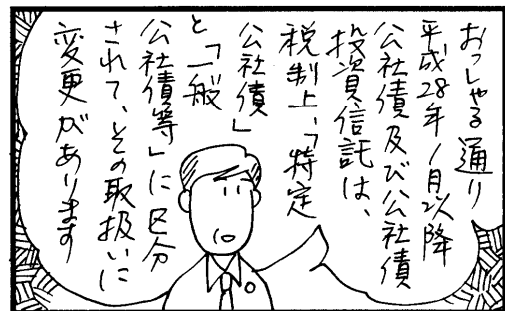 おっしゃる通り
平成28年1月以降
公社債及び公社債
投資信託は、
税制上、「特定
公社債」
と「一般
公社債等」に区分
されて、その取扱いに
変更があります